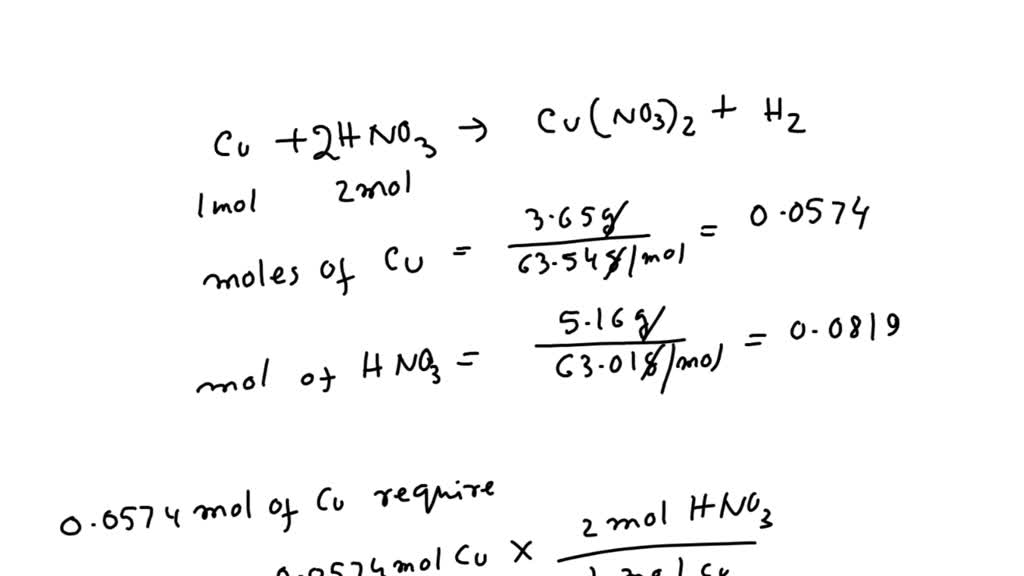 Cu + 2HNO3 → Cu(NO3)2 + H2
1mol 2mol
moles of Cu = 3.65g / 63.54g/mol = 0.0574
mol of HNO3 = 5.16g / 63.01g/mol = 0.0819
0.0574 mol of Cu require
0.0574 mol Cu × 2 mol HNO3 / 1 mol Cu